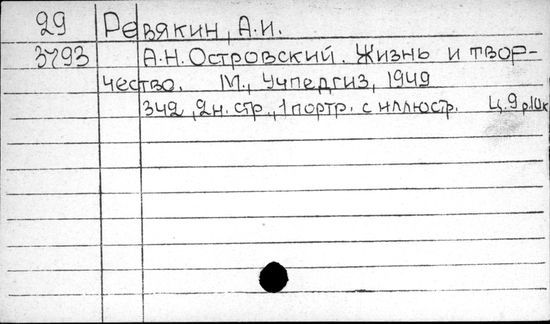 29 Ревякин, А.И.
3793 А.Н. Островский. Жизнь и твор-
чество. М., Учпедгиз, 1949
342, 2н. стр., 1 портр. с иллюстр. Ц. 9 р. 10 к